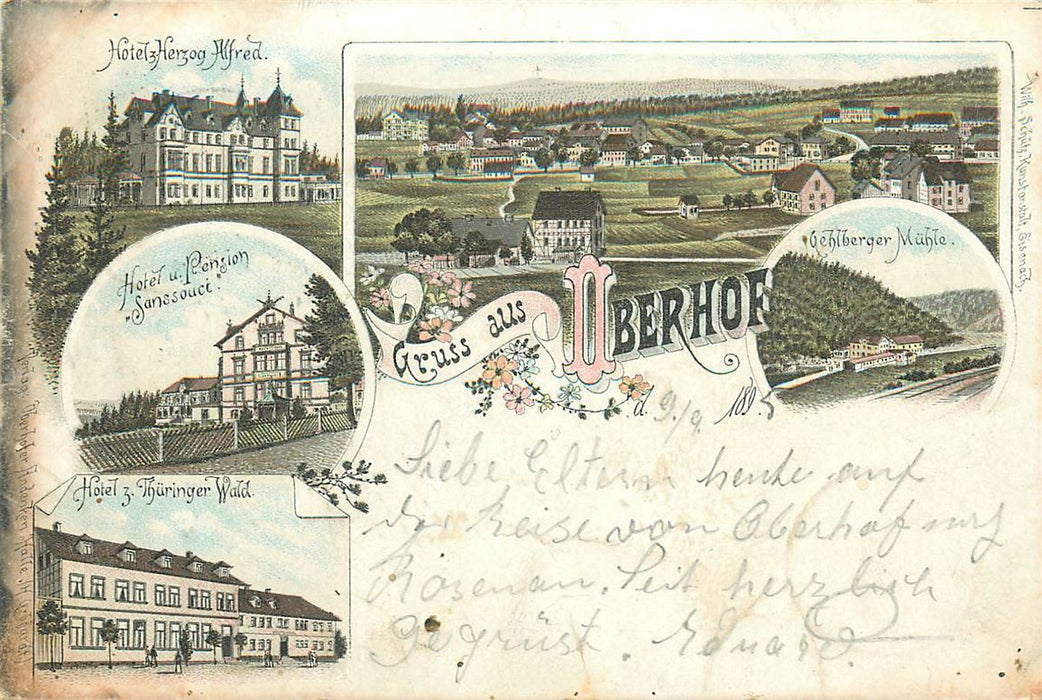 Hotel z. Herzog Alfred.
Hotel u. Pension
„Sanssouci."
Hotel z. Thüringer Wald.
Gehlberger Mühle.
Gruss aus OBERHOF
d. 9./9. 1895
Liebe Eltern heute auf
der Reise von Oberhof
Rosenau. Seit herzlich
gegrüst. Eduard.
Wilh. Schütz, Kunstanstalt, Eisenach.